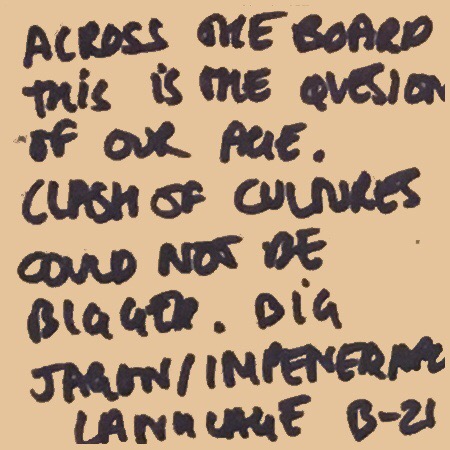 ACROSS THE BOARD
THIS IS THE QUESION
OF OUR AGE.
CLASH OF CULTURES
COULD NOT BE
BIGGER. BIG
JARGON/IMPENERABLE
LANGUAGE B-21